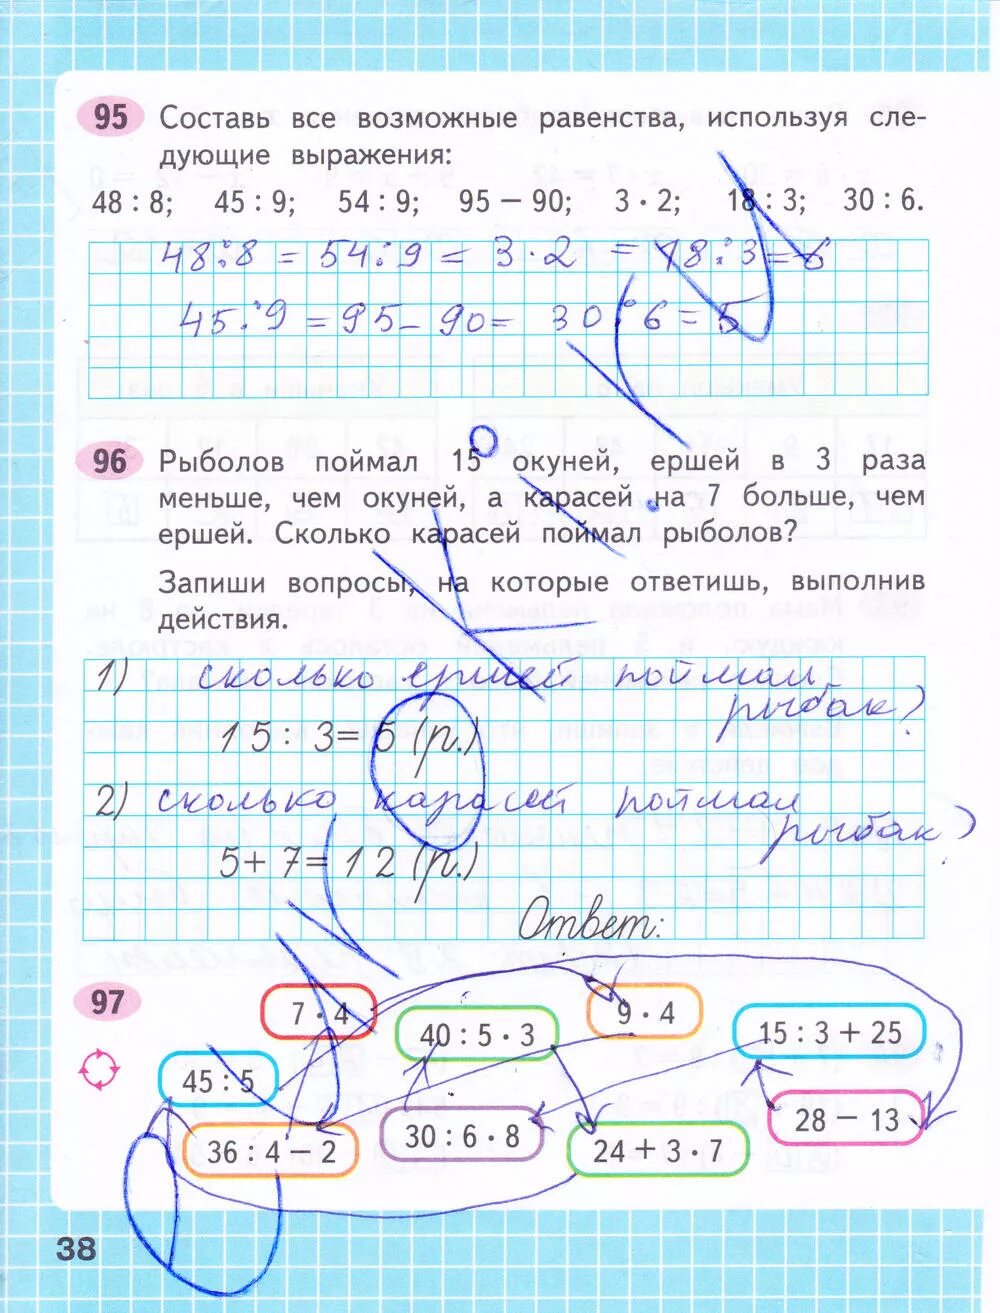 95 Составь все возможные равенства, используя сле-
дующие выражения:
48 : 8; 45 : 9; 54 : 9; 95 − 90; 3 · 2; 18 : 3; 30 : 6.
48:8 = 54:9 = 3·2 = 18:3 = 6
45:9 = 95 - 90 = 30:6 = 5
96 Рыболов поймал 15 окуней, ершей в 3 раза
меньше, чем окуней, а карасей на 7 больше, чем
ершей. Сколько карасей поймал рыболов?
Запиши вопросы, на которые ответишь, выполнив
действия.
1) сколько ершей поймал
рыбак?
15 : 3 = 5 (р.)
2) сколько карасей поймал
рыбак?
5 + 7 = 12 (р.)
Ответ:
97
7 · 4
9 · 4
40 : 5 · 3
15 : 3 + 25
45 : 5
28 − 13
30 : 6 · 8
36 : 4 − 2
24 + 3 · 7
38